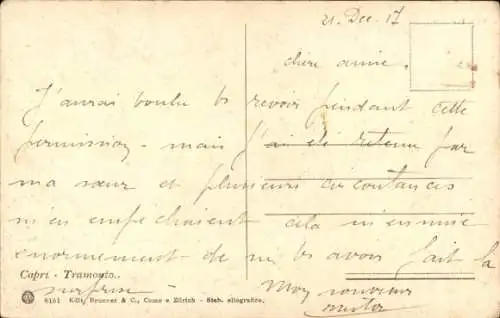 21. Dec. 17
chère amie.
J'aurais voulu te revoir pendant cette
permission - mais j'ai été retenu par
ma sœur et plusieurs circonstances
m'en empêchaient cela m'ennuie
énormément - de ne te avoir fait la
surprise
Mon souvenir
Capri - Tramonto.
6151 Edit. Brunner & C., Como e Zürich - Stab. eliografico.